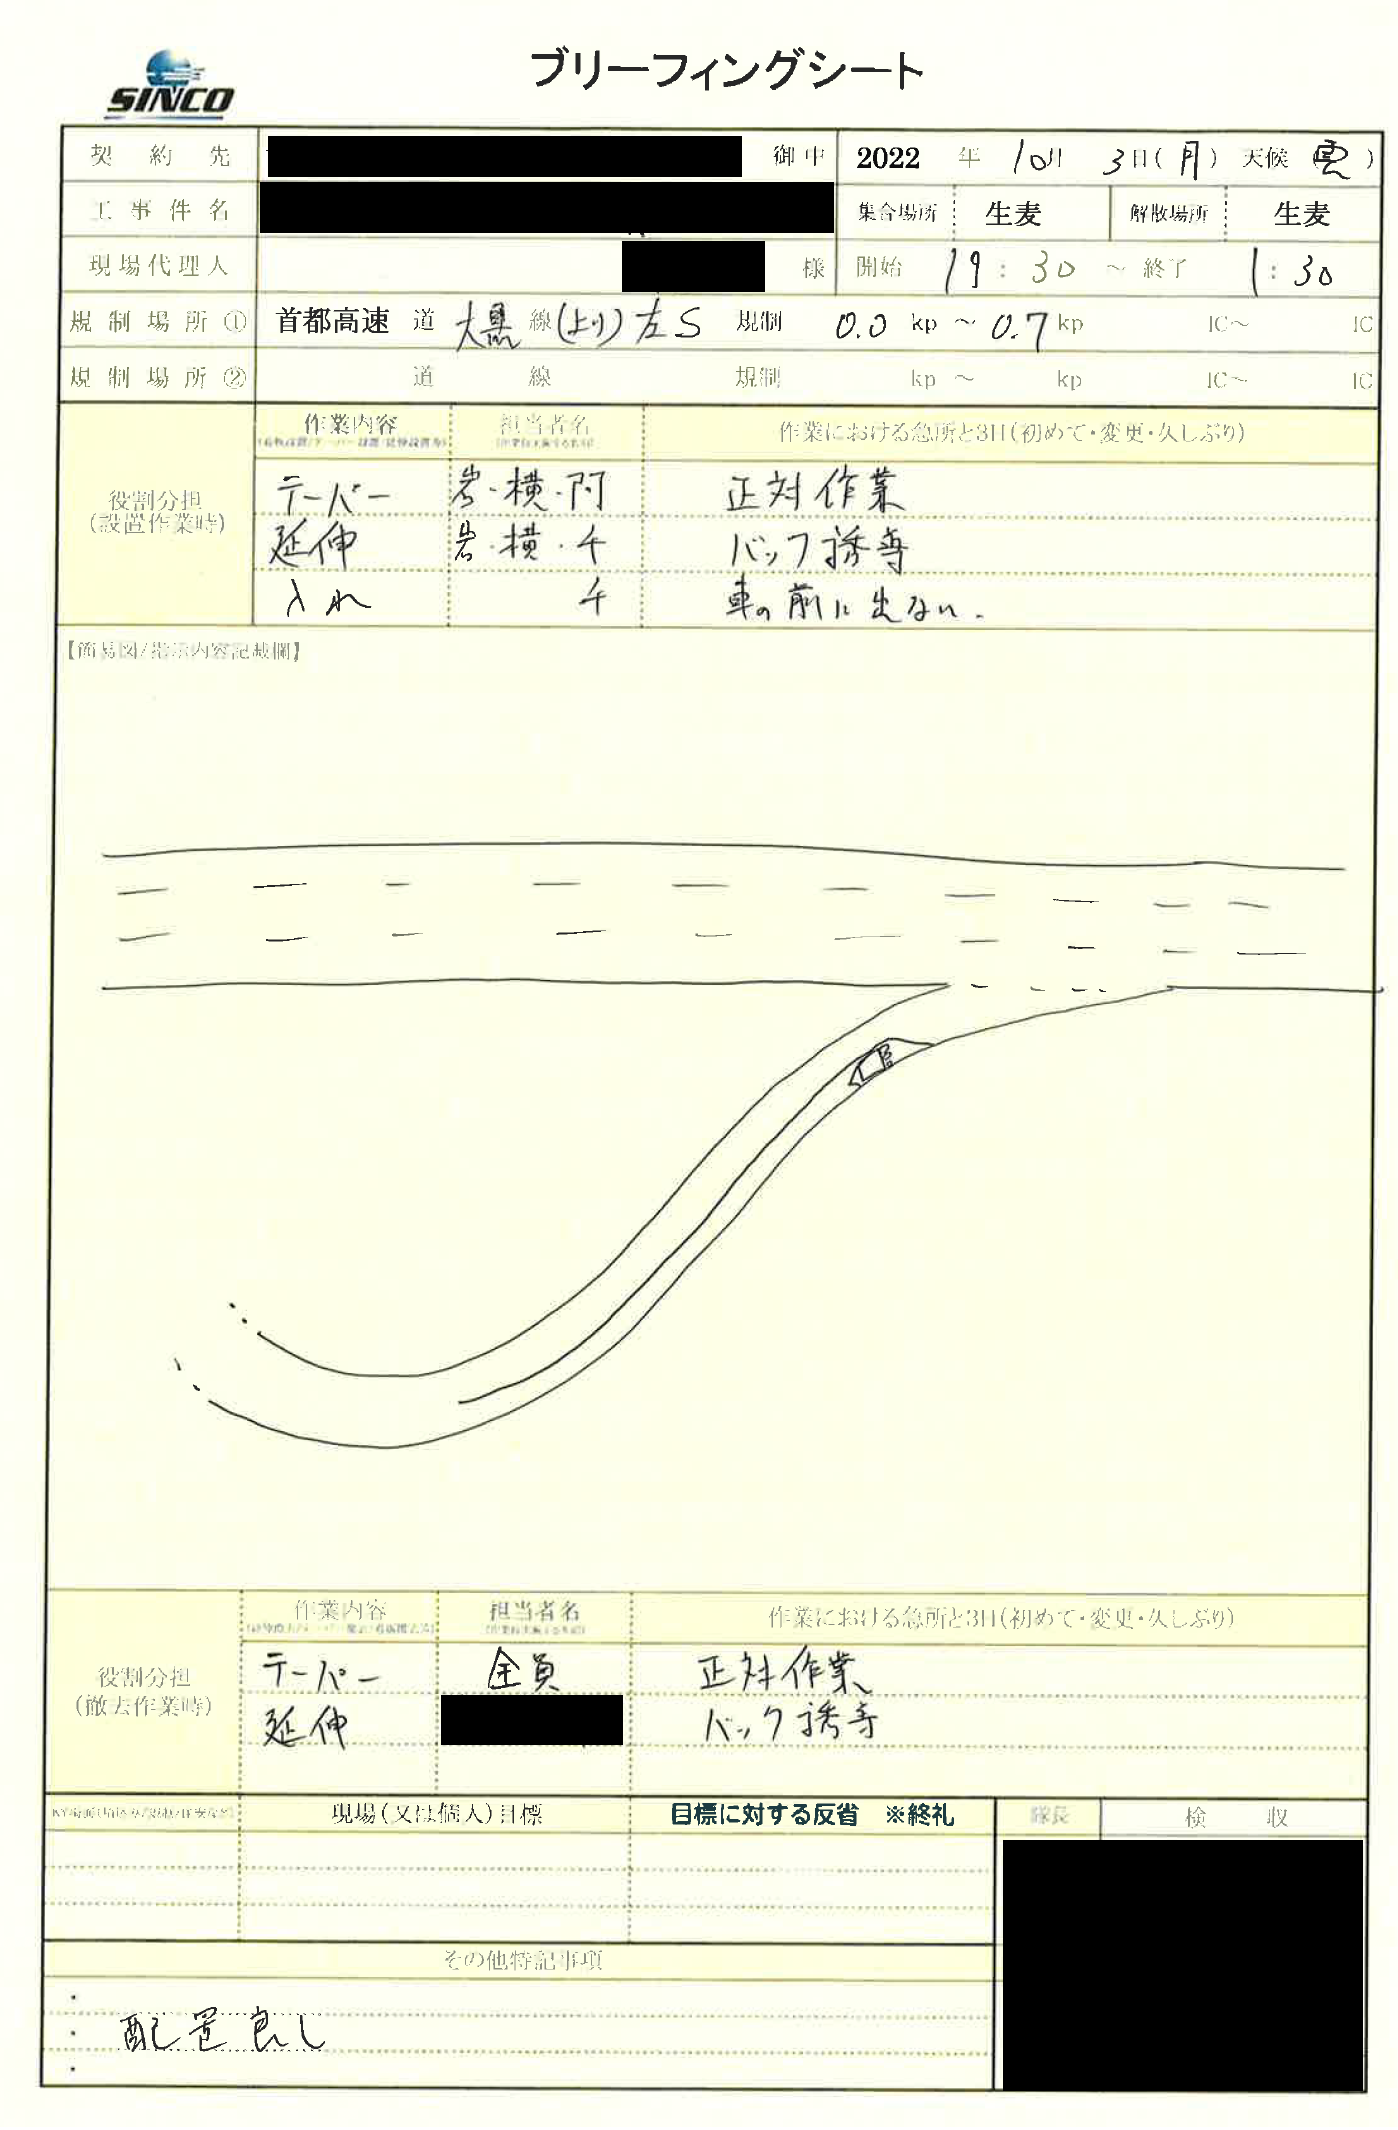 SINCO
ブリーフィングシート
契約先 御中 2022 年 10月 3日(月) 天候 (雲)
工事件名 集合場所 生麦 解散場所 生麦
現場代理人 様 開始 19:30 ～ 終了 1:30
規制場所① 首都高速 道 大黒 線(より)左S 規制 0.0 kp ～ 0.7 kp IC～ IC
規制場所② 道 線 規制 kp ～ kp IC～ IC
作業内容 担当者名 作業における急所と3H(初めて・変更・久しぶり)
役割分担
(設置作業時)
テーパー 岩・横・阿 正対作業
延伸 岩・横・千 バック誘導
入れ 千 車の前に出ない.
【簡易図/指示内容記載欄】
作業内容 担当者名 作業における急所と3H(初めて・変更・久しぶり)
役割分担
(撤去作業時)
テーパー 全員 正対作業
延伸 バック誘導
現場(又は個人)目標 目標に対する反省 ※終礼 隊長 検収
その他特記事項
・
・ 配置良し
・